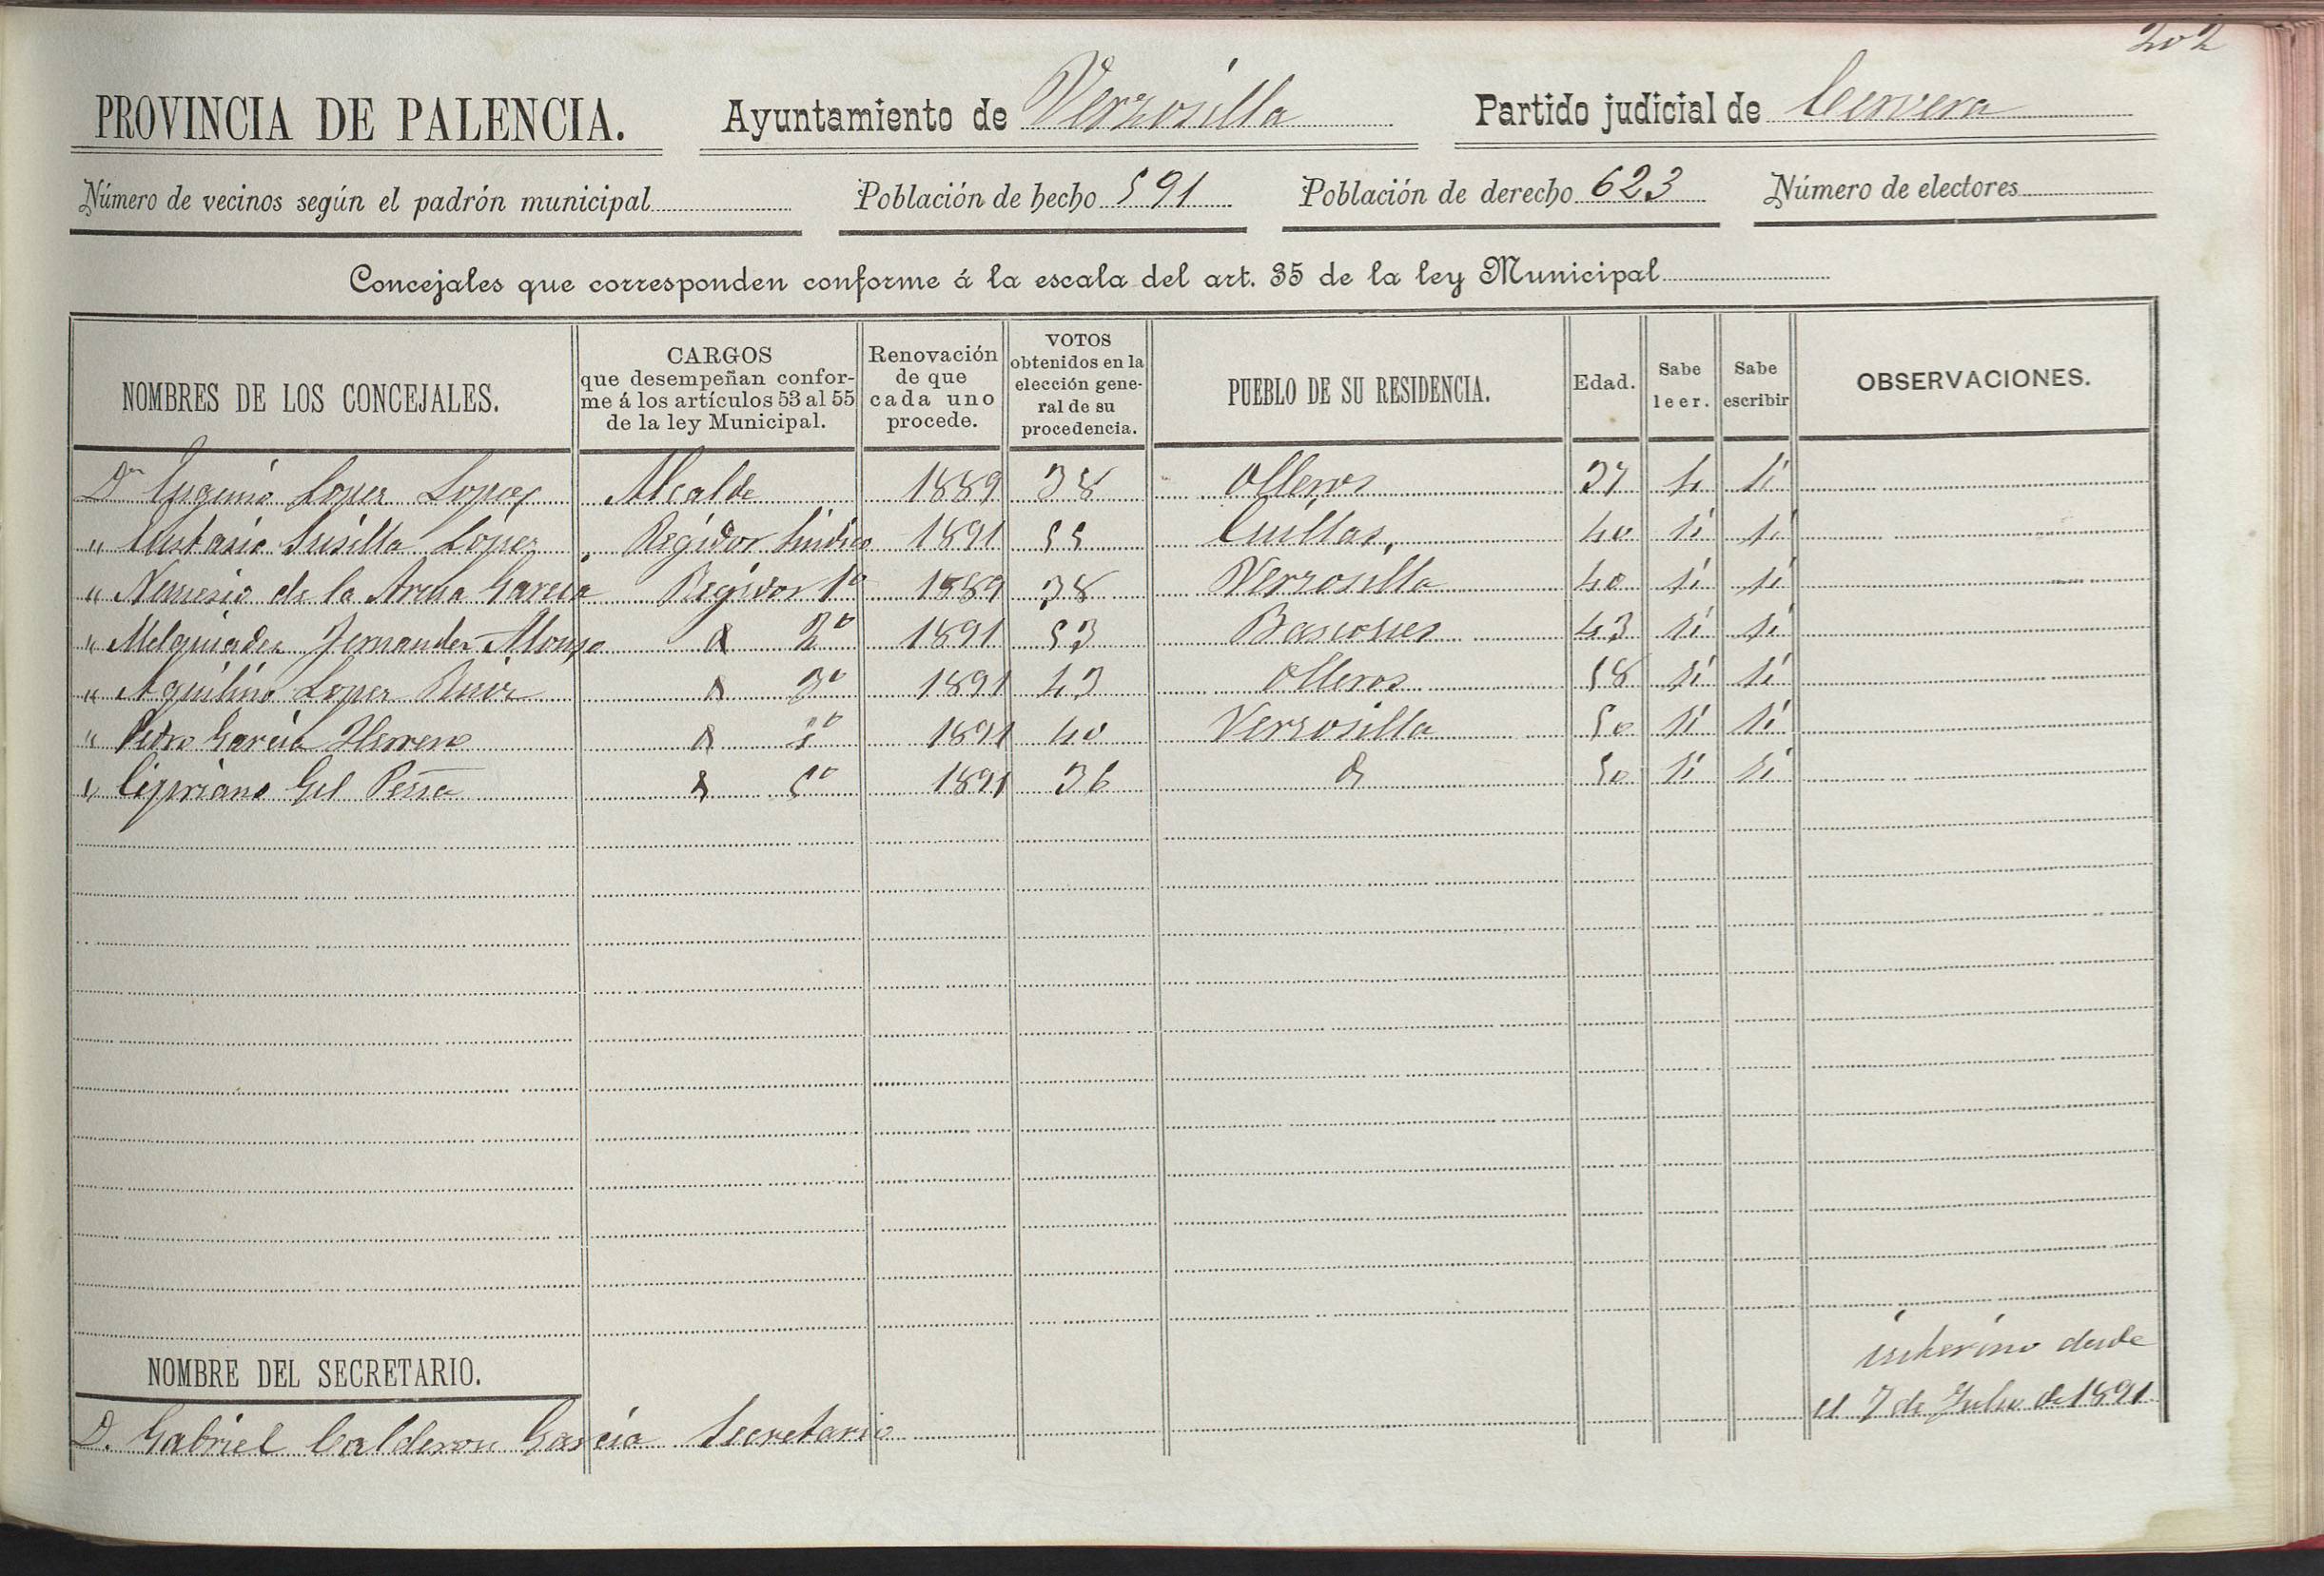 202
PROVINCIA DE PALENCIA. Ayuntamiento de Verzosilla Partido judicial de Cervera
Número de vecinos según el padrón municipal Población de hecho 591 Población de derecho 623 Número de electores
Concejales que corresponden conforme á la escala del art. 35 de la ley Municipal
NOMBRES DE LOS CONCEJALES. CARGOS que desempeñan conforme á los artículos 53 al 55 de la ley Municipal. Renovación de que cada uno procede. VOTOS obtenidos en la elección general de su procedencia. PUEBLO DE SU RESIDENCIA. Edad. Sabe leer. Sabe escribir OBSERVACIONES.
Dn Eugenio Lopez Lopez Alcalde 1889 38 Olleros 37 si si
" Eustasio Susilla López Regidor Sindico 1891 55 Cuillas, 40 si si
" Nemesio de la Arena Garcia Regidor 1º 1889 38 Verzosilla 40 si si
" Melquiades Fernandez Alonso 2º 1891 53 Bascones 43 si si
" Aquilino Lopez Ruiz 3º 1891 43 Olleros 58 si si
" Pedro García Herrero 1891 40 Verzosilla 50 si si
" Cipriano Gil Peña 5º 1891 36 50 si si
NOMBRE DEL SECRETARIO.
interino desde
el 7 de Julio de 1891
D. Gabriel Calderon Garcia Secretario